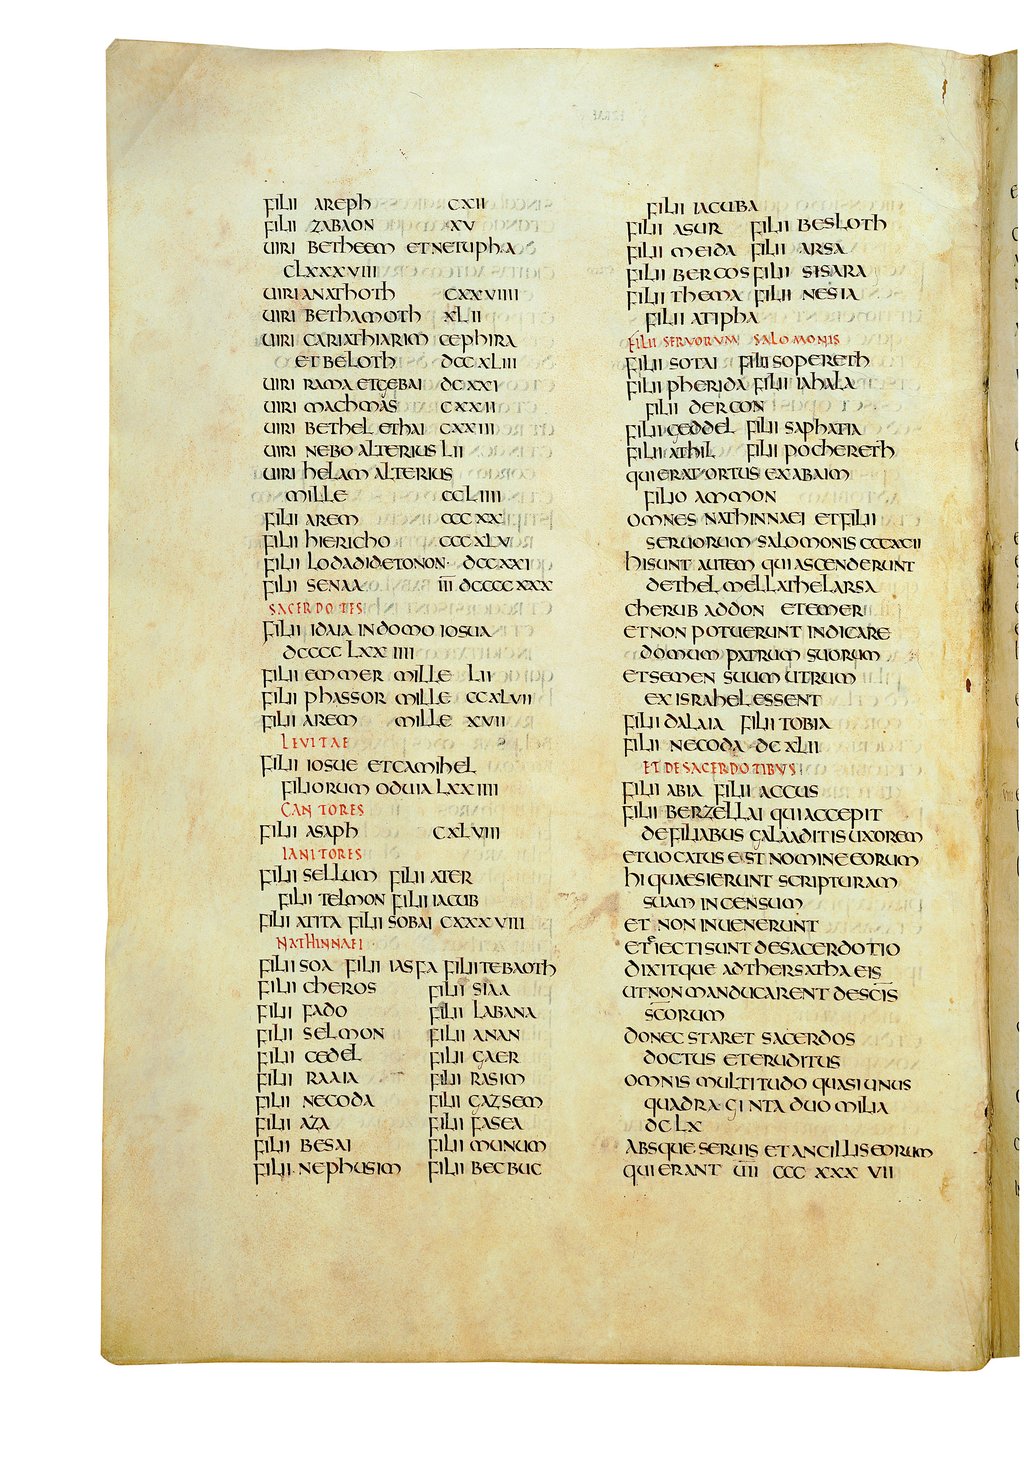 EZRAE
FILII AREPH CXII
FILII ZABAON XV
UIRI BETHEEM ET NETUPHA
CLXXXVIII
UIRI ANATHOTH CXXVIIII
UIRI BETHAMOTH XLII
UIRI CARIATHIARIM CEPHIRA
ET BELOTH DCCXLIII
UIRI RAMA ET GEBAI DCXXI
UIRI MACHMAS CXXII
UIRI BETHEL ET HAI CXXIII
UIRI NEBO ALTERIUS LII
UIRI HELAM ALTERIUS
MILLE CCLIIII
FILII AREM CCCXX
FILII HIERICHO CCCXLV
FILII LODADID ET ONON DCCXXI
FILII SENAA III DCCCCXXX
SACERDOTES
FILII IDAIA IN DOMO IOSUA
DCCCCLXXIIII
FILII EMMER MILLE LII
FILII PHASSOR MILLE CCXLVII
FILII AREM MILLE XVII
LEVITAE
FILII IOSUE ET CAMIHEL
FILIORUM ODUIA LXXIIII
CANTORES
FILII ASAPH CXLVIII
IANITORES
FILII SELLUM FILII ATER
FILII TELMON FILII IACUB
FILII ATITA FILII SOBAI CXXXVIII
NATHINNAEI
FILII SOA FILII IASFA FILII TEBAOTH
FILII CHEROS FILII SIAA
FILII FADO FILII LABANA
FILII SELMON FILII ANAN
FILII CEDEL FILII GAER
FILII RAAIA FILII RASIM
FILII NECODA FILII GAZSEM
FILII AZA FILII FASEA
FILII BESAI FILII MUNUM
FILII NEPHUSIM FILII BECBUC
FILII IACUBA
FILII ASUR FILII BESLOTH
FILII MEIDA FILII ARSA
FILII BERCOS FILII SISARA
FILII THEMA FILII NESIA
FILII ATIPHA
FILII SERVORUM SALOMONIS
FILII SOTAI FILII SOPERETH
FILII PHERIDA FILII IAHALA
FILII DERCON
FILII GEDDEL FILII SAPHATIA
FILII ATHIL FILII POCHERETH
QUI ERAT ORTUS EX ABAIM
FILIO AMMON
OMNES NATHINNAEI ET FILII
SERUORUM SALOMONIS CCCXCII
HI SUNT AUTEM QUI ASCENDERUNT
DETHELMELLA THELARSA
CHERUB ADDON ET EMER
ET NON POTUERUNT INDICARE
DOMUM PATRUM SUORUM
ET SEMEN SUUM UTRUM
EX ISRAHEL ESSENT
FILII DALAIA FILII TOBIA
FILII NECODA DCXLII
ET DE SACERDOTIBUS
FILII ABIA FILII ACCUS
FILII BERZELLAI QUI ACCEPIT
DE FILIABUS GALAADITIS UXOREM
ET UOCATUS EST NOMINE EORUM
HI QUAESIERUNT SCRIPTURAM
SUAM IN CENSUM
ET NON INUENERUNT
ET EIECTI SUNT DE SACERDOTIO
DIXITQUE ADTHERSATHA EIS
UT NON MANDUCARENT DE SCIS
SCORUM
DONEC STARET SACERDOS
DOCTUS ET ERUDITUS
OMNIS MULTITUDO QUASI UNUS
QUADRAGINTA DUO MILIA
DCLX
ABSQUE SERUIS ET ANCILLIS EORUM
QUI ERANT UII CCC XXX VII